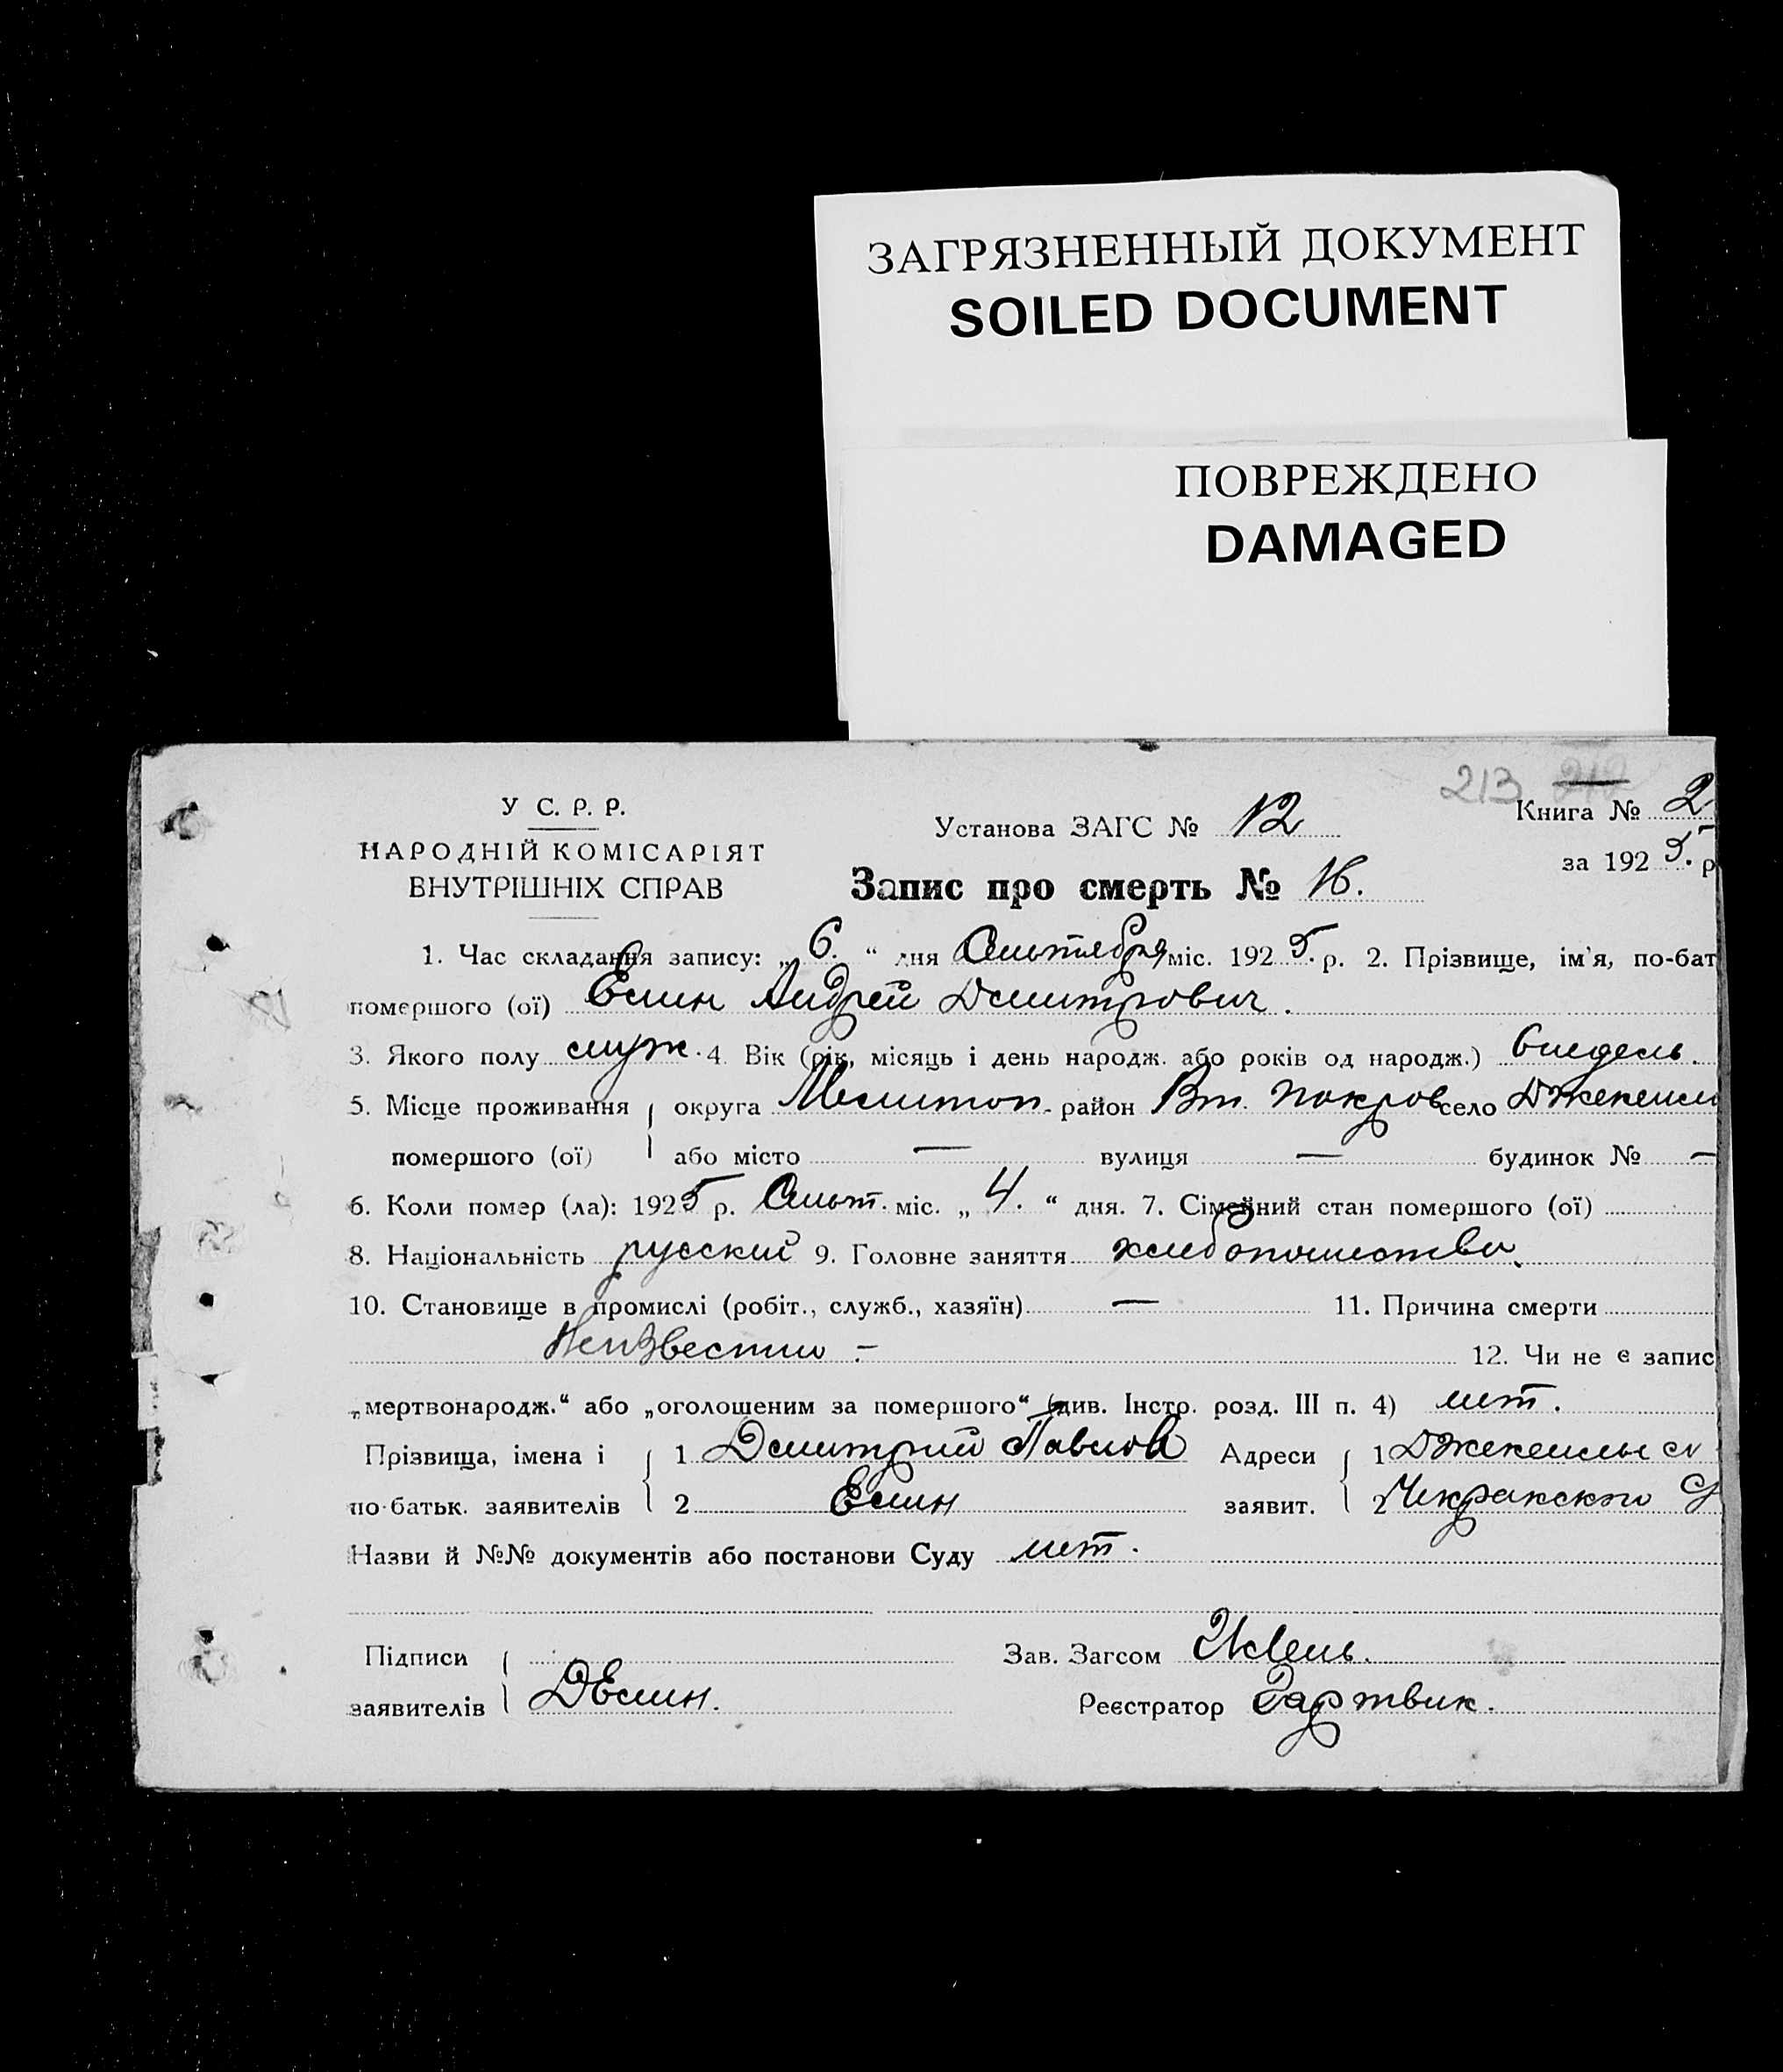 ЗАГРЯЗНЕННЫЙ ДОКУМЕНТ
SOILED DOCUMENT
ПОВРЕЖДЕНО
DAMAGED
213 212
У С. Р. Р.
НАРОДНІЙ КОМІСАРІЯТ
ВНУТРІШНІХ СПРАВ
Установа ЗАГС № 12
Книга № 2
за 1925. р
Запис про смерть № 16.
1. Час складання запису: „ 6. “ дня Сентября міс. 1925. р. 2. Прізвище, ім'я, по-бат
помершого (ої) Есин Андрей Дмитрович.
3. Якого полу муж. 4. Вік (рік, місяць і день народж. або років од народж.) 6 недель.
5. Місце проживання округа Мелитоп. район Вт. Покров село Джекенлы
помершого (ої) або місто — вулиця — будинок № —
6. Коли помер (ла): 1925 р. Сент. міс. „ 4. “ дня. 7. Сімейний стан помершого (ої)
8. Національність русский 9. Головне заняття хлебопашество.
10. Становище в промислі (робіт., служб., хазяїн) — 11. Причина смерти
Неизвестно.- 12. Чи не є запис
„мертвонародж.“ або „оголошеним за помершого“ (див. Інстр. розд. III п. 4) нет.
Прізвища, імена і 1 Дмитрий Павлов Адреси 1 Джекенлы
по-батьк. заявителів 2 Есин заявит. 2 Чекракского
Назви й №№ документів або постанови Суду нет.
Підписи Зав. Загсом
заявителів ДЕсин. Реєстратор Гартвик.